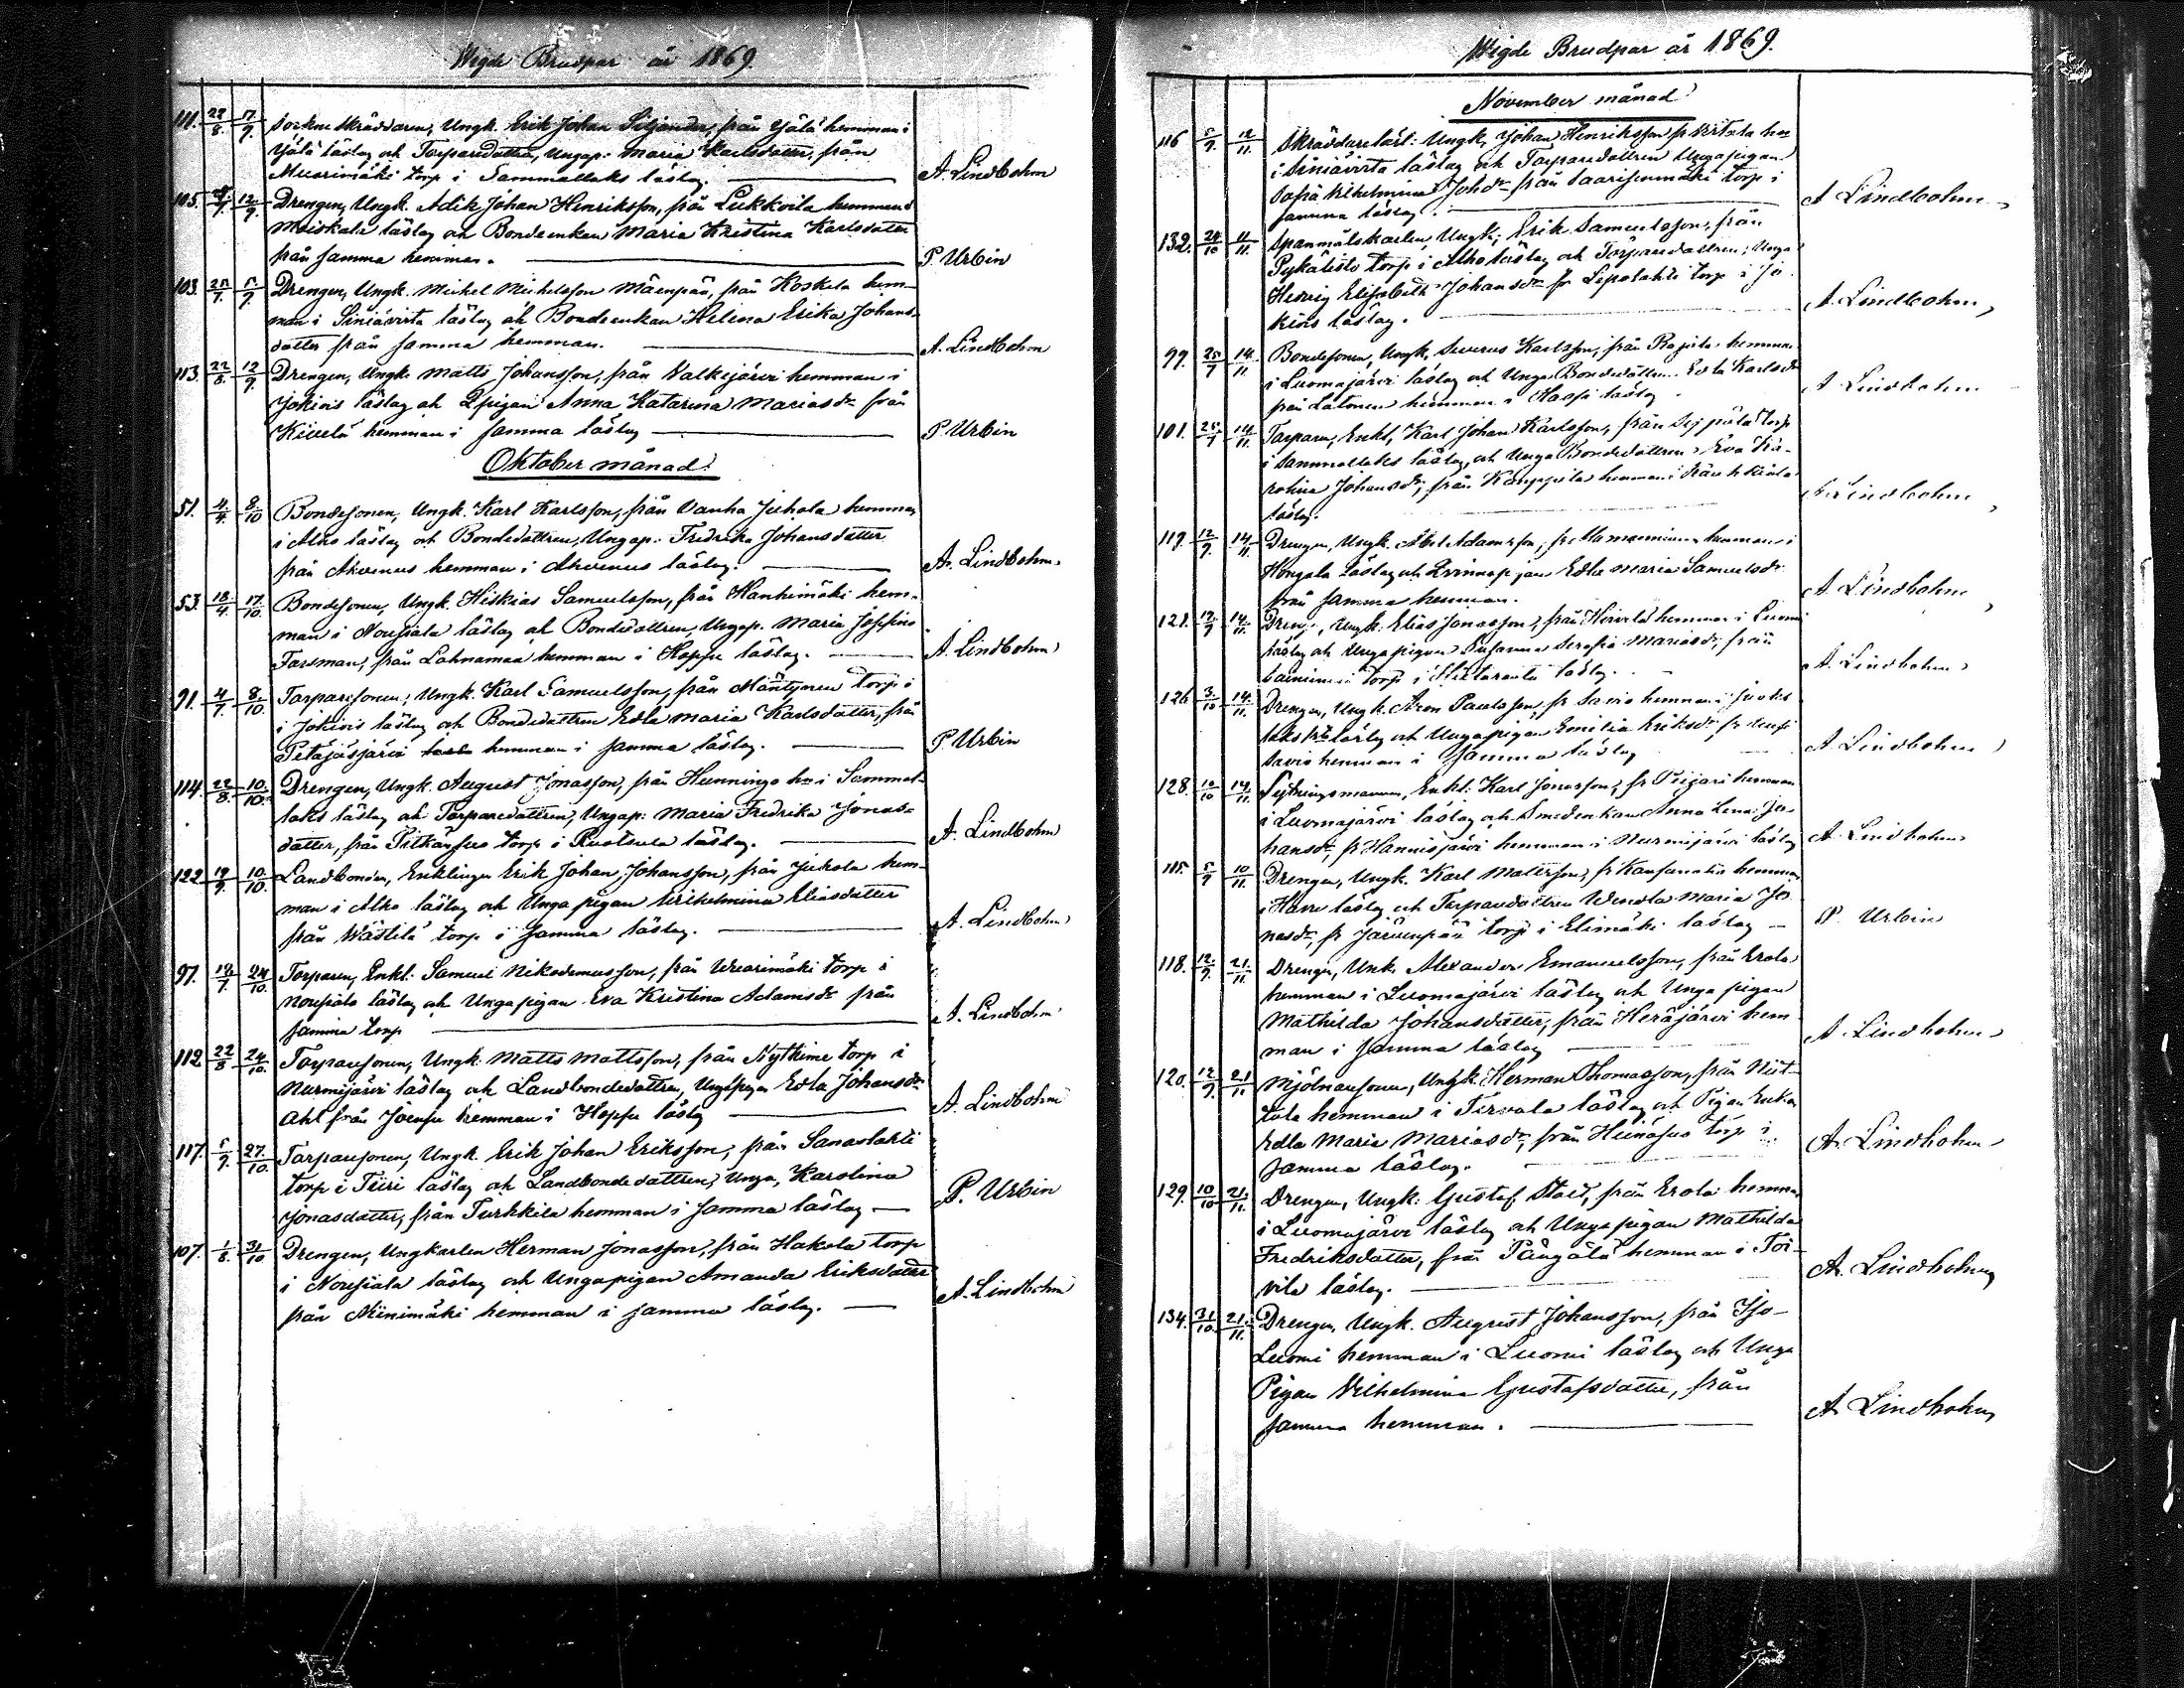 Wigde Brudpar år 1869.
111. 22/8. 17/9. Sockneskräddaren, Ungk. Erik Johan Siljander, från Ylälä hemman i
läslag och Torparedottren, Ungap. Maria Karlsdotter, från
torp i Sammallaks läslag. A. Lindbohm
105. 12/9. Drengen, Ungk. Johan Henriksson, från hemman i
läslag och Bondeenkan Maria Kristina Karlsdotter
från samma hemman. P. Urbin
103. 25/7. 5/9. Drengen, Ungk. Mickel Mickelsson Mäenpää, från Koskela hem-
man i Siniävirta läslag och Bondeenkan Helena Erika Johans-
dotter från samma hemman. A. Lindbohm
113. 22/8. 12/9. Drengen, Ungk. Matts Johansson, från Valkejärvi hemman i
Jokiois läslag och pigan Anna Katarina Mariasdr från
Kivelä hemman i samma läslag P. Urbin
Oktober månad.
51. 4/4. 8/10 Bondesonen, Ungk. Karl Karlsson, från Vanha Juhola hemman
i Alho läslag och Bondedottren, Ungap. Fredrika Johansdotter
från Ahvenus hemman i Ahvenus läslag. A. Lindbohm.
53. 18/4. 17/10. Bondesonen, Ungk. Hiskias Samuelsson, från Hanhimäki hem-
man i Nousiala läslag och Bondedottren, Ungap. Maria Josefina
Forsman, från Lahnamaa hemman i läslag. A. Lindbohm
91. 4/7. 8/10. Torparesonen, Ungk. Karl Samuelsson, från Mäntynen torp i
i Jokiois läslag och Bondedottren Edla Maria Karlsdotter, från
Petäjäsjärvi hemman i samma läslag. P Urbin
114. 22/8. 10/10. Drengen, Ungk. August Jonasson, från Hunningo hn i Sammal-
laks läslag och Torparedottren, Ungap. Maria Fredrika Jonas-
dotter, från torp i läslag. A. Lindbohm
122 19/9. 10/10. Landbonden, Enklingen Erik Johan Johansson, från Juhola hem-
man i Alho läslag och Unga pigan Wilhelmina Eliasdotter
från Wästilä torp i samma läslag. A. Lindbohm
97. 18/7. 24/10. Torparen, Enkl. Samuel Nikodemusson, från Wuorimäki torp i
Nousiala läslag och Unga pigan Eva Kristina Adamsdr från
samma torp A. Lindbohm
112 22/8 24/10. Torparesonen, Ungk. Matts Mattsson, från torp i
Nurmijärvi läslag och Landbondedottren, Ungapigan Edla Johansdr
Ahl från Joensu hemman i läslag A. Lindbohm
117. 5/9. 27/10. Torparesonen, Ungk. Erik Johan Eriksson, från Sanaslahti
torp i Tiiri läslag och Landbondedottren, Unga, Karolina
Jonasdotter, från Turkkila hemman i samma läslag P. Urbin
107. 1/8. 31/10 Drengen, Ungkarlen Herman Jonasson, från Hakola torp
i Nousiala läslag och Ungapigan Amanda Eriksdotter
från Niinimäki hemman i samma läslag. A. Lindbohm
Wigde Brudpar år 1869.
November månad
116 5/9. 12/11. Skräddarelärl. Ungk. Johan Henriksson fr Virtala hn
i Siniävirta läslag och Torparedottren Ungapigan
Sofia Vilhelmina Johdr från torp i
samma läslag. A Lindbohm
132. 24/10 11/11. Spanmålskarlen, Ungk. Erik Samuelsson, från
torp i Alho läslag och Torparedottren, Unga
Hedvig Elisabeth Johansdr fr Lepolahti torp i Jo-
kiois läslag. A. Lindbohm
99. 25/7 14/11. Bondesonen, Ungk. Severus Karlsson, från hemman
i Luomajärvi läslag och Unga Bondedottren Edla Karlsdr
från hemman i läslag A Lindbohm
101. 25/7 14/11. Torparen, Enkl. Karl Johan Karlsson, från torp
i Sammallaks läslag, och Unga Bondedottren Eva Ka-
rolina Johansdr, från Kauppila hemman i
läslag. A Lindbohm
119. 12/9. 14/11. Drengen, Ungk. Abel Adamsson, fr hemman i
Hongala läslag och Edla Maria Samuelsdr
från samma hemman. A Lindbohm
121. 12/9 14/11. Dreng., Ungk. Elias Jonasson, från hemman i Luomi
läslag och Unga pigan Susanna Serafia Mariasdr, från
torp i läslag. A. Lindbohm
126 3/10 14/11. Drengen, Ungk. Aron Paulsson, fr Savio hemman i
läslag och Ungapigan Emilia Eriksdr, fr
Savio hemman i samma läslag A Lindbohm
128. 10/10 14/11. Enkl. Karl Jonasson, fr Piijari hemman
i Luomajärvi läslag och Smedenkan Anna Lena Jo-
hansdr, fr Hannisjärvi hemman i Nurmijärvi läslag A Lindbohm
115. 5/9 10/11. Drengen, Ungk. Karl Mattsson, fr hemman
i läslag och Torparedottren Wendla Maria Jo-
nasdr, fr Järvenpää torp i Elimäki läslag P. Urbin
118. 12/9. 21/11. Drengen, Unk. Alexander Emanuelsson, från Erola
hemman i Luomajärvi läslag och Unga pigan
Mathilda Johansdotter, från Heräjärvi hem
man i samma läslag A Lindbohm
120. 12/9. 21/11. Mjölnaresonen, Ungk. Herman Thomasson, från Niit-
tola hemman i Tervola läslag och Pigan Enkan
Edla Maria Mariasdr, från Heinäsuo torp i
samma läslag. A. Lindbohm
129. 10/10 21/11. Drengen, Ungk. Gustaf från Erola hemman
i Luomajärvi läslag och Unga pigan Mathilda
Fredriksdotter, från hemman i Toi-
vila läslag. A. Lindbohm
134. 31/10. 21/11. Drengen, Ungk. August Johansson, från Iso-
Luomi hemman i Luomi läslag och Unga
Pigan Vilhelmina Gustafsdotter, från
samma hemman. A Lindbohm